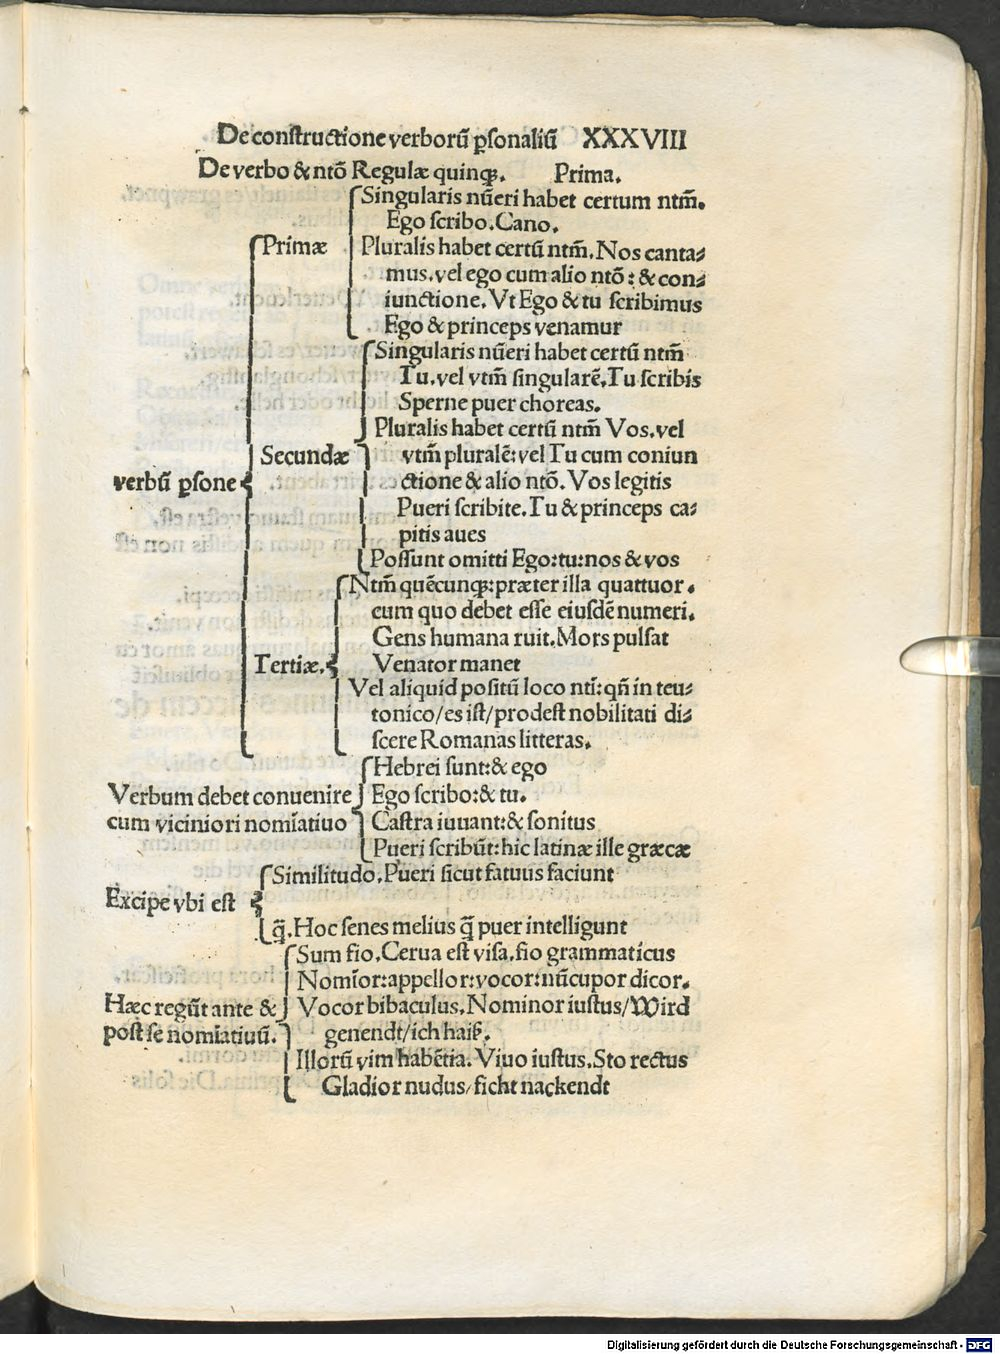 De constructione verborū ꝑsonaliū XXXVIII
De verbo & ntō Regulæ quinqꝫ. Prima.
Singularis nūeri habet certum ntm̄.
Ego scribo. Cano.
Primæ
Pluralis habet certū ntm̄. Nos canta⸗
mus. vel ego cum alio ntō: & con⸗
iunctione. Vt Ego & tu scribimus
Ego & princeps venamur
Singularis nūeri habet certū ntm̄
Tu. vel vtm̄ singularē. Tu scribis
Sperne puer choreas.
Pluralis habet certū ntm̄ Vos. vel
Secundæ
vtm̄ pluralē: vel Tu cum coniun
verbū ꝑsone
ctione & alio ntō. Vos legitis
Pueri scribite. Tu & princeps ca⸗
pitis aues
Possunt omitti Ego: tu: nos & vos
Ntm̄ quēcunqꝫ: præter illa quattuor.
cum quo debet esse eiusdē numeri.
Gens humana ruit. Mors pulsat
Tertiæ.
Venator manet
Vel aliquid positū loco nti: qñ in teu⸗
tonico/es ist/prodest nobilitati di⸗
scere Romanas litteras.
Hebrei sunt: & ego
Verbum debet conuenire
Ego scribo: & tu.
cum viciniori nomīatiuo
Castra iuuant: & sonitus
Pueri scribūt: hic latinæ ille græcæ
Similitudo. Pueri sicut fatuus faciunt
Excipe vbi est
q̄. Hoc senes melius q̄ puer intelligunt
Sum fio. Cerua est visa. fio grammaticus
Nomīor: appellor: vocor: nūcupor dicor.
Hæc regūt ante &
Vocor bibaculus. Nominor iustus/Wird
post se nomīatiuū.
genendt/ich haiß.
Illorū vim habētia. Viuo iustus. Sto rectus
Gladior nudus/ficht nackendt
Digitalisierung gefördert durch die Deutsche Forschungsgemeinschaft - DFG